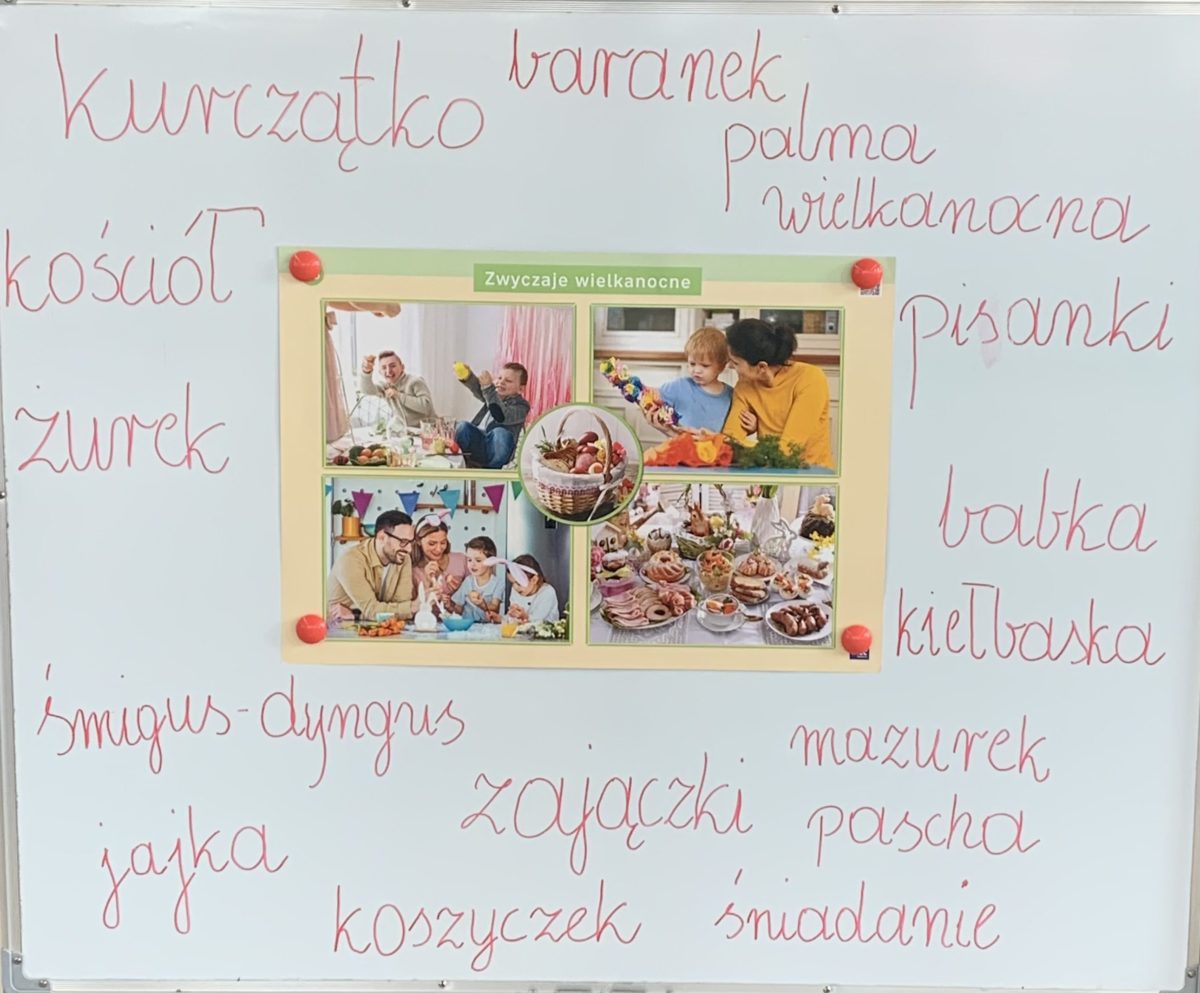 kurczątko
baranek
palma
wielkanocna
kościół
Zwyczaje wielkanocne
pisanki
żurek
babka
kiełbaska
śmigus-dyngus
zajączki
mazurek
pascha
jajka
koszyczek
śniadanie